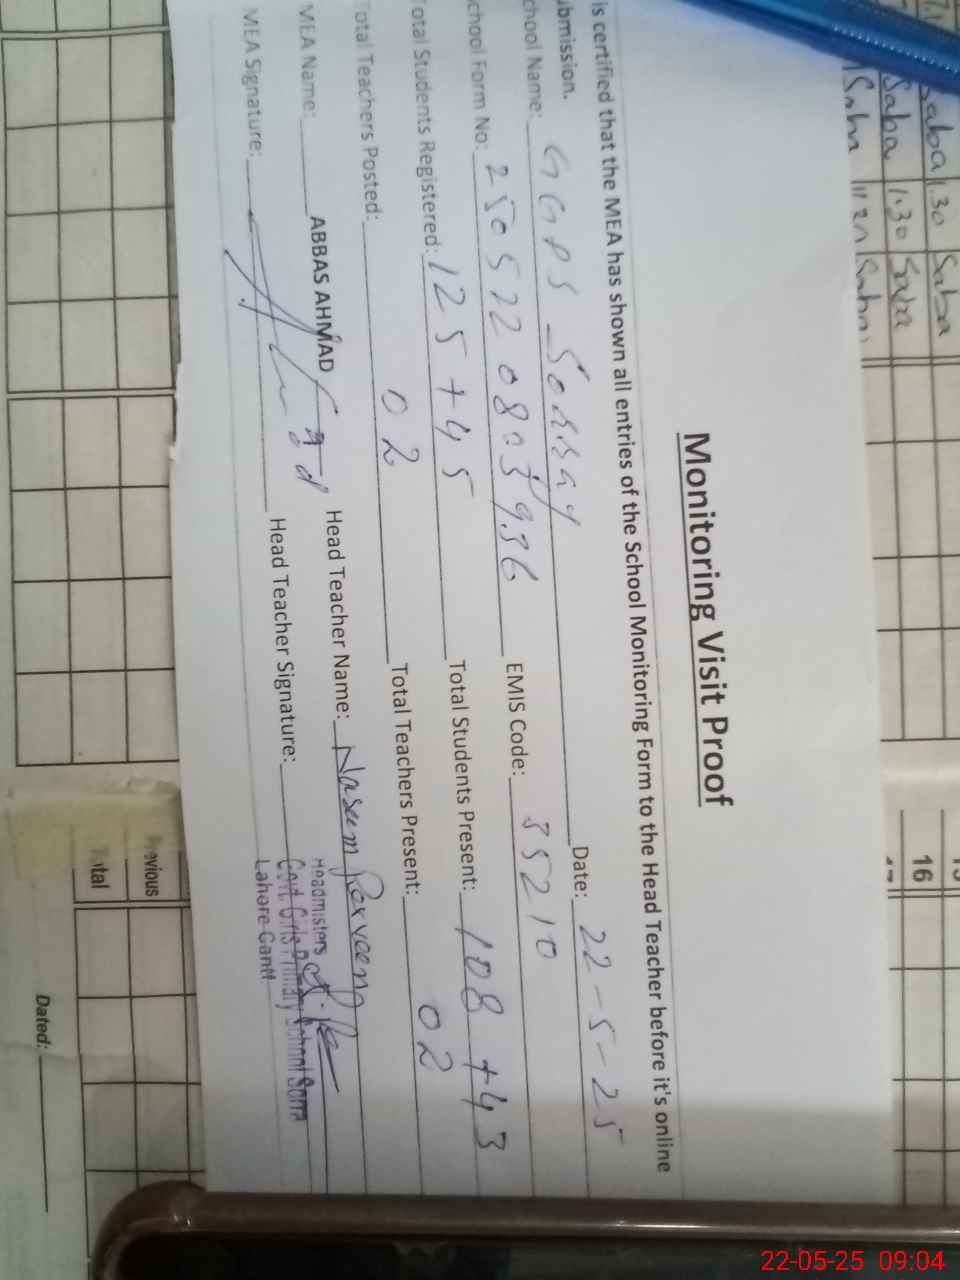 Monitoring Visit Proof
is certified that the MEA has shown all entries of the School Monitoring Form to the Head Teacher before it's online
ubmission.
chool Name: GGPS Sorray Date: 22-5-25
chool Form No: EMIS Code: 35210
otal Students Registered: 125+45 Total Students Present: 108+43
Total Teachers Posted: 02 Total Teachers Present: 02
MEA Name: ABBAS AHMAD Head Teacher Name: Naseem Perveen
MEA Signature: Head Teacher Signature:
Headmisters
Govt Girls Primary School Sorra
Lahore Cantt
Saba 1.30 Saba
Saba 1.30 Saba
Saba 11 20 Saba
16
Previous
Total
Dated:
22-05-25 09:04